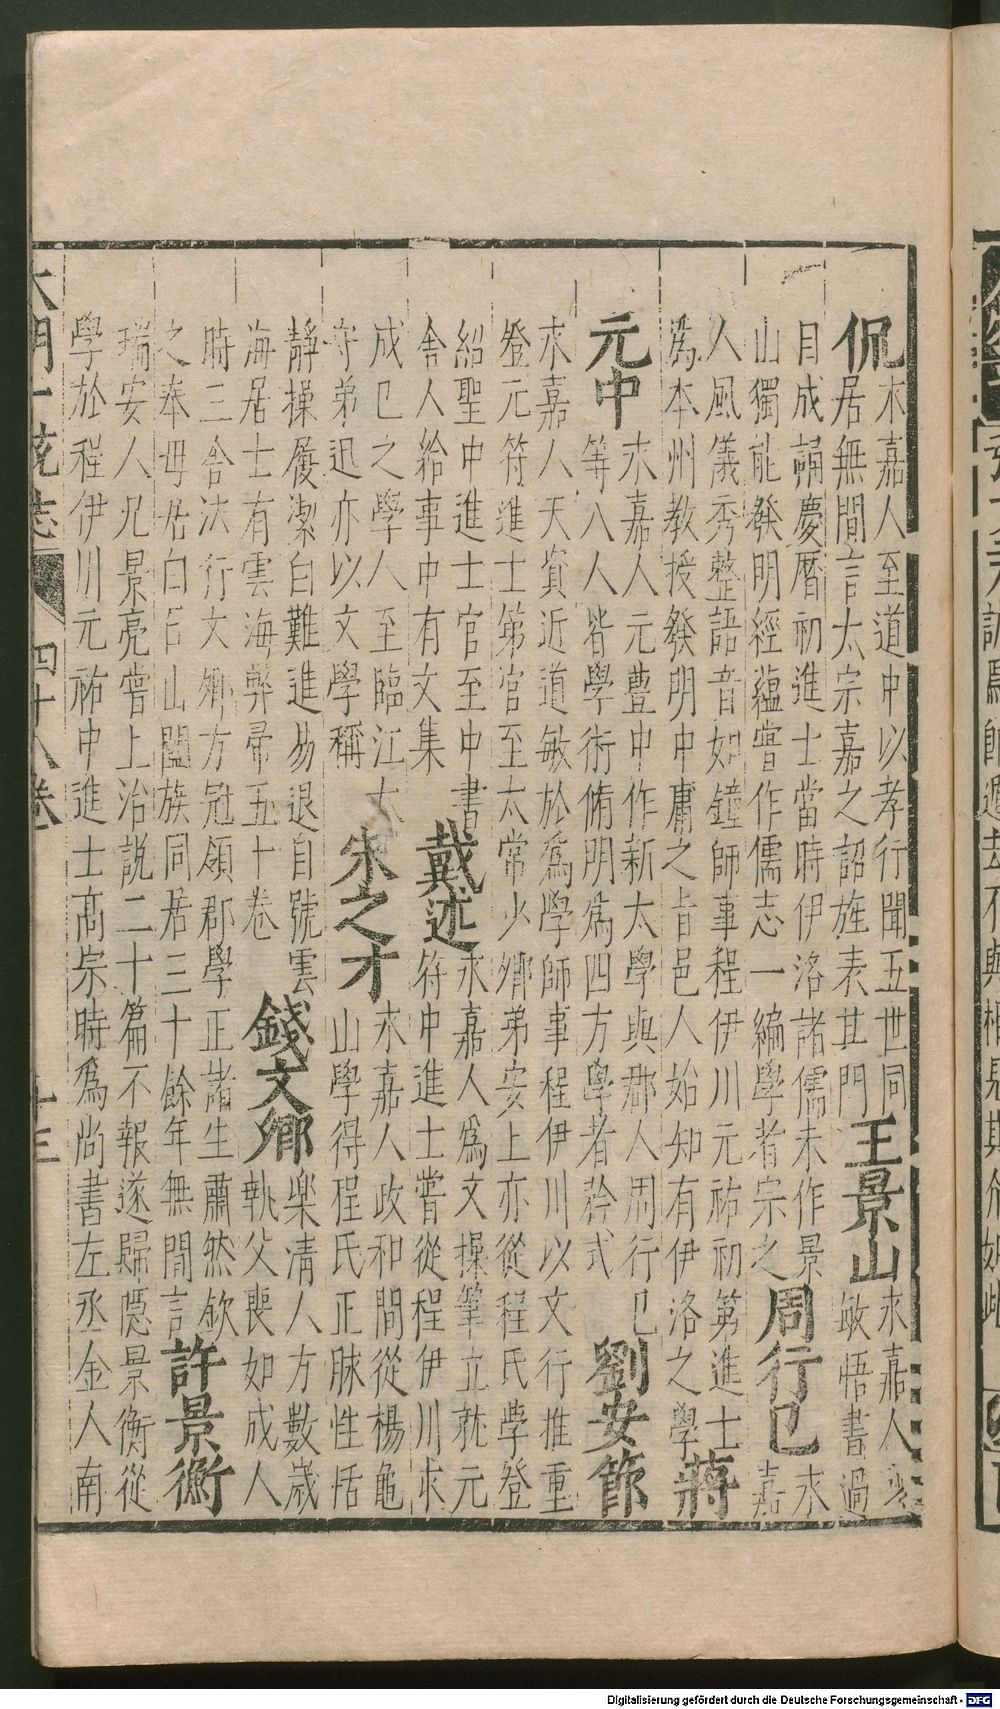 侃永嘉人至道中以孝行聞五世同居無間言太宗嘉之詔旌表其門王景山永嘉人敏悟書過
目成誦慶曆初進士當時伊洛諸儒未作景山獨能發明經蘊嘗作儒志一編學者宗之周行己永嘉
人風儀秀整語音如鐘師事程伊川元祐初第進士為本州教授發明中庸之旨邑人始知有伊洛之學蔣
元中永嘉人元豐中作新太學與郡人周行己等八人皆學術脩明為四方學者矜式劉安節
永嘉人天資近道敏於為學師事程伊川以文行推重登元符進士第官至太常少卿弟安上亦從程氏學登
紹聖中進士官至中書舍人給事中有文集戴述永嘉人為文操筆立就元符中進士嘗從程伊川求
成已之學人至臨江太守弟迅亦以文學稱朱之才永嘉人政和間從楊龜山學得程氏正脉性恬
靜操履潔白難進易退自號雲海居士有雲海弊帚五十卷錢文卿樂清人方數歲執父喪如成人
時三舍法行文卿方冠領郡學正諸生肅然欽之奉母居白石山闔族同居三十餘年無間言許景衡
瑞安人兄景亮嘗上治説二十篇不報遂歸隱景衡從學於程伊川元祐中進士高宗時為尚書左丞金人南
大明一統志 四十八卷 十三
Digitalisierung gefördert durch die Deutsche Forschungsgemeinschaft - DFG